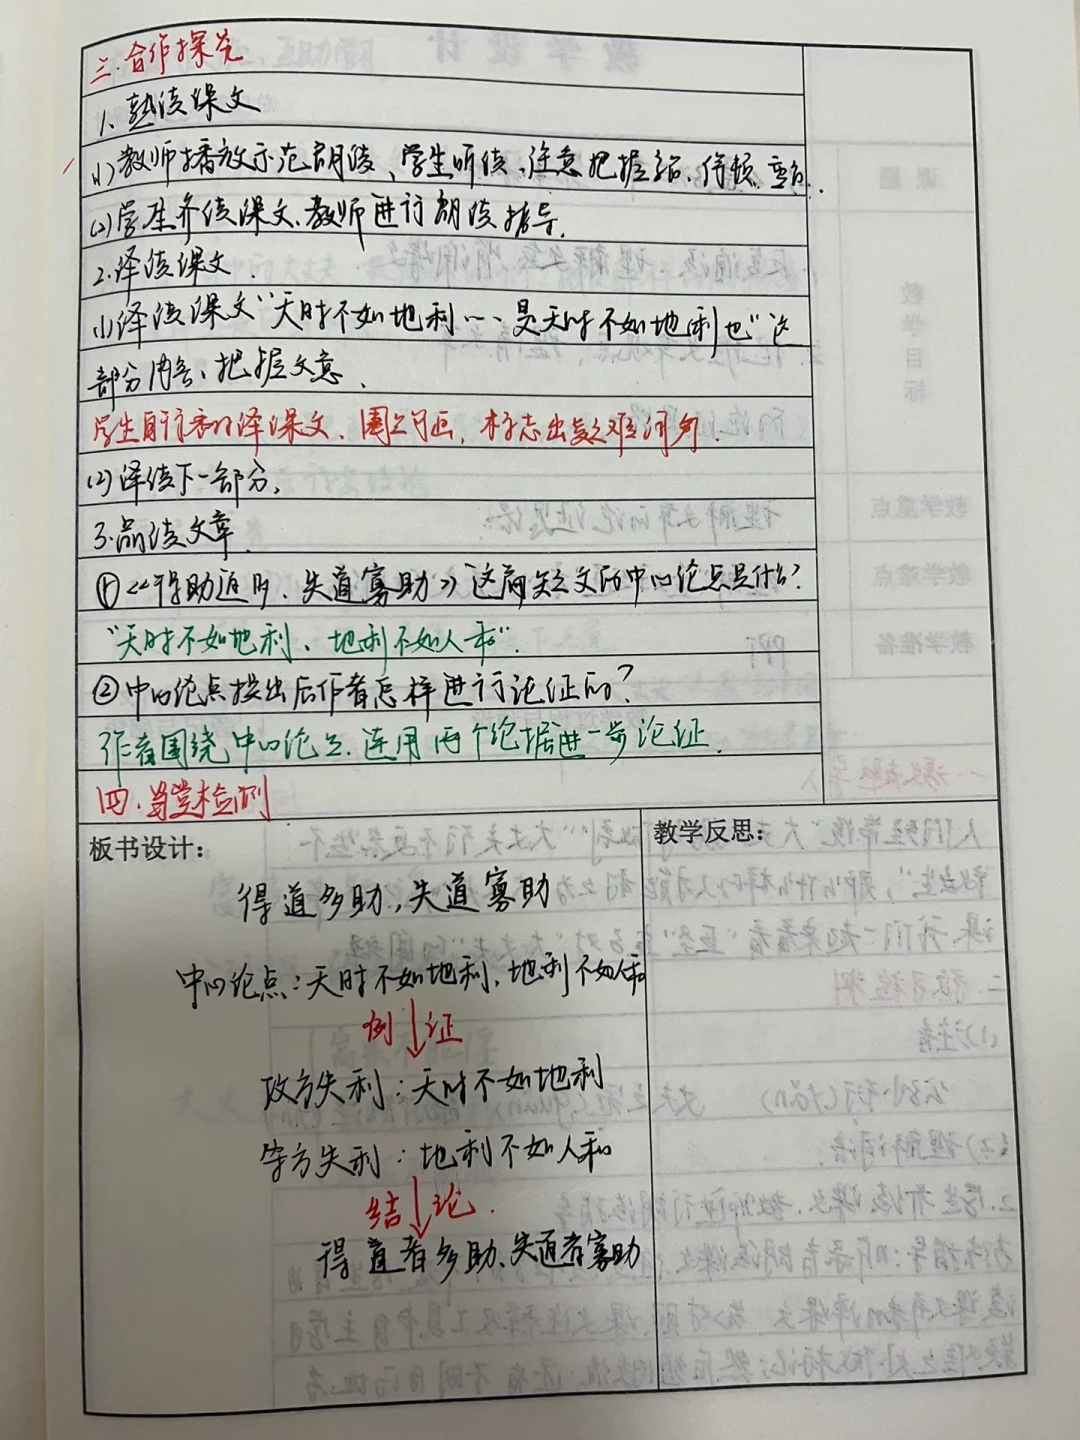 三.合作探究
1、熟读课文
(1)教师播放示范朗读、学生听读、注意把握、停顿、重音.
(2)学生齐读课文、教师进行朗读指导.
2.译读课文.
(1)译读课文"天时不如地利……是天时不如地利也"这
部分内容、把握文意、
学生自行译课文、圈点勾画、标志出疑难词句.
(2)译读下一部分,
3.品读文章.
①《得助道多、失道寡助》这篇短文的中心论点是什么?
"天时不如地利、地利不如人和".
②中心论点提出后作者怎样进行论证的?
作者围绕中心论点.连用两个论据进一步论证.
四.当堂检测
板书设计:
得道多助,失道寡助
中心论点:天时不如地利,地利不如人和
例 证
攻方失利:天时不如地利
守方失利:地利不如人和
结 论.
得道者多助、失道者寡助
教学反思: